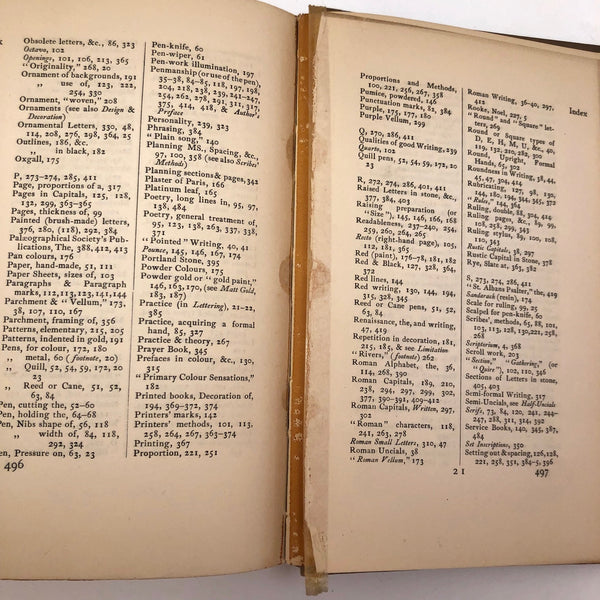 x
Obsolete letters, &c., 86, 323
Octavo, 102
Openings, 101, 106, 213, 365
"Originality," 268, 20
Ornament of backgrounds, 191
„ use of, 123, 222,
254, 330
Ornament, "woven," 208
Ornaments (see also Design &
Decoration)
Ornamental Letters, 330, 48,
114, 208, 276, 298, 364, 25
Outlines, 186, &c.
„ in black, 182
Oxgall, 175
P, 273–274, 285, 411
Page, proportions of a, 317
Pages in Capitals, 125, 128,
132, 299, 363–365
Pages, thickness of, 99
Painted (brush-made) letters,
376, 280, (118), 292, 384
Palæographical Society's Pub-
lications, The, 388, 412, 413
Pan colours, 176
Paper, hand-made, 51, 111
Paper Sheets, sizes of, 103
Paragraphs & Paragraph
marks, 112, 113, 123, 141, 144
Parchment & "Vellum," 173,
38, 107, 110, 167
Parchment, framing of, 356
Patterns, elementary, 215, 205
Patterns, indented in gold, 191
Pens, for colour, 172, 180
„ metal, 60 (footnote, 20)
„ Quill, 52, 54, 59, 172, 20
23
„ Reed or Cane, 51, 52,
63, 84
Pen, cutting the, 52–60
Pen, holding the, 64–68
Pen, Nibs shape of, 56, 118
„ width of, 84, 118,
292, 324
Pen, Pressure on, 63, 23
496
Pen-knife, 60
Pen-wiper, 61
Pen-work illumination, 197
Penmanship (or use of the pen),
35–38, 84–85, 118, 197, 198,
204, 218, 238, 239, 241–247,
254, 262, 278, 291, 311, 317,
375, 414, 418 & Author's
Preface
Personality, 239, 323
Phrasing, 384
"Plain song," 140
Planning MS., Spacing, &c.,
97, 100, 358 (see also Scribes'
Methods)
Planning sections & pages, 342
Plaster of Paris, 166
Platinum leaf, 165
Poetry, long lines in, 95, 97,
138, 484
Poetry, general treatment of,
95, 123, 138, 263, 337, 338,
371
"Pointed" Writing, 40, 41
Pounce, 145, 146, 167, 174
Portland Stone, 395
Powder Colours, 175
Powder gold or "gold paint,"
146, 163, 170, (see Matt Gold,
183, 187)
Practice (in Lettering), 21–22,
385
Practice, acquiring a formal
hand, 85, 327
Practice & theory, 267
Prayer Book, 345
Prefaces in colour, &c., 130,
315
"Primary Colour Sensations,"
182
Printed books, Decoration of,
194, 369–372, 374
Printers' marks, 142
Printers' methods, 101, 113,
258, 264, 267, 363–374
Printing, 367
Proportion, 221, 251
Proportions and Methods,
100, 221, 256, 267, 358
Pumice, powdered, 146
Punctuation marks, 82
Purple, 175, 177, 180
Purple Vellum, 299
Q, 270, 286, 411
Qualities of good Writing, 239
Quarto, 102
Quill pens, 52, 54, 59, 172, 20,
23
R, 272, 274, 286, 401, 411
Raised Letters in stone, &c.,
377, 384, 403
Raising preparation (or
"Size"), 145, 146, 166, 168
Readableness, 237–240, 254,
259, 260, 264, 265
Recto (right-hand page), 105,
112, 181, 365
Red (paint), 176–178, 181, 182
Red & Black, 127, 328, 364,
372
Red lines, 144
Red writing, 130, 144, 194,
315, 328, 345
Reed or Cane pens, 51, 52,
63, 84
Renaissance, the, and writing,
47, 419
Repetition in decoration, 181,
215, 185, & see Limitation
"Rivers," (footnote) 262
Roman Alphabet, the, 36,
114, 268, 390
Roman Capitals, 189, 210,
238, 294, 297, 299, 302,
377, 390–391, 409–412
Roman Capitals, Written, 297,
302
"Roman" characters, 118,
241, 263, 278
Roman Small Letters, 310, 47
Roman Uncials, 38
"Roman Vellum," 173
2 I
Roman Writing, 36–40, 297,
412
Rooks, Noel, 227, 5
"Round" and "Square" let-
ters, 269
Round or Square types of
D, E, H, M, U, &c., 40,
119, 132, 210, 282, 300
Round, Upright, Formal
Hands, 304
Roundness in Writing, 38, 44,
45, 47, 304, 414
Rubricating, 127, 98, 130,
144, 194, 344, 345, 372
"Rules," 144, 364
Ruling, double, 88, 304, 414
Ruling pages, &c., 89, 99,
108, 109, 343
Ruling stylus, 89, 100, 109,
110, 343
Rustic Capitals, 38, 297
Rustic Capital in Stone, 378
Rye, Slate at, 361, 382
S, 273, 274, 286, 411
"St. Albans Psalter," the, 419
Sandarach (resin), 174
Scale for ruling, 99, 25
Scalpel for pen-knife, 60
Scribes', methods, 65, 88, 101,
103, 113, 128, 130, 221, 258,
268
Scriptorium, 4, 368
Scroll work, 203
"Section," "Gathering," (or
"Quire"), 102, 110, 346
Sections of Letters in stone,
405, 403
Semi-formal Writing, 317
Semi-Uncials, see Half-Uncials
Serifs, 73, 84, 120, 241, 244–
247, 288, 311, 324, 332,
343
Service Books, 140, 345, 387,
484
Set Inscriptions, 350
Setting out & spacing, 126, 128,
221, 258, 351, 384–5, 396
497
Index